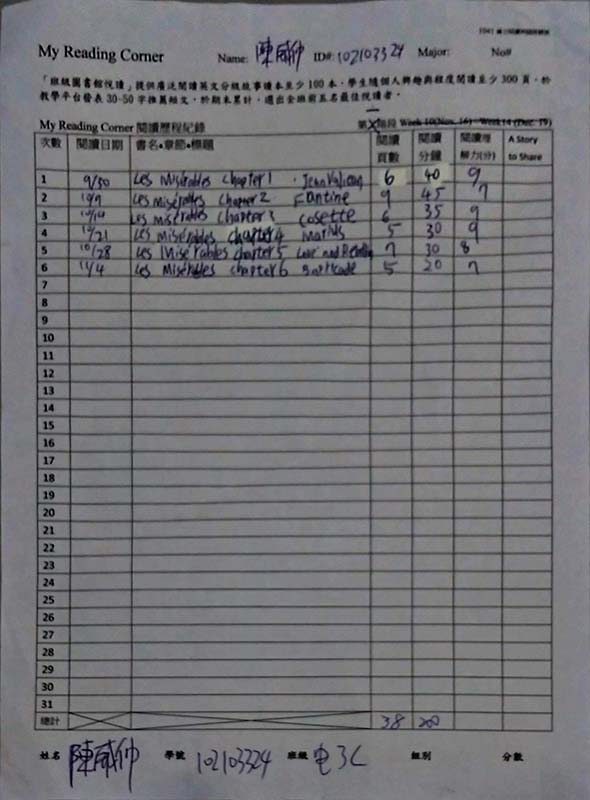 My Reading Corner Name: 陳威帥 ID#: 102103324 Major: No#
「班級圖書館悅讀」提供廣泛閱讀英文分級故事讀本至少 100 本。學生隨個人興趣與程度閱讀至少 300 頁,於
教學平台發表 30-50 字推薦短文,於期末累計,選出全班前五名最佳悅讀者。
My Reading Corner 閱讀歷程紀錄 第一階段 Week 10(Nov. 16) Week14 (Dec. 19)
次數 閱讀日期 書名•章節•標題 閱讀頁數 閱讀分鐘 閱讀理解力(分) A Story to Share
1 9/30 Les Misérables chapter 1 . Jean Valjean 6 40 9
2 10/7 Les misérables chapter 2 Fantine 9 45 7
3 10/14 Les misérables chapter 3 Cosette 6 35 9
4 10/21 Les misérables chapter 4 Marius 5 30 9
5 10/28 Les Misérables chapter 5 Love and 7 30 8
6 11/4 Les Misérables chapter 6 Barricade 5 20 7
7
8
9
10
11
12
13
14
15
16
17
18
19
20
21
22
23
24
25
26
27
28
29
30
31
總計 38 200
姓名 陳威帥 學號 102103324 班級 电3C 組別 分數